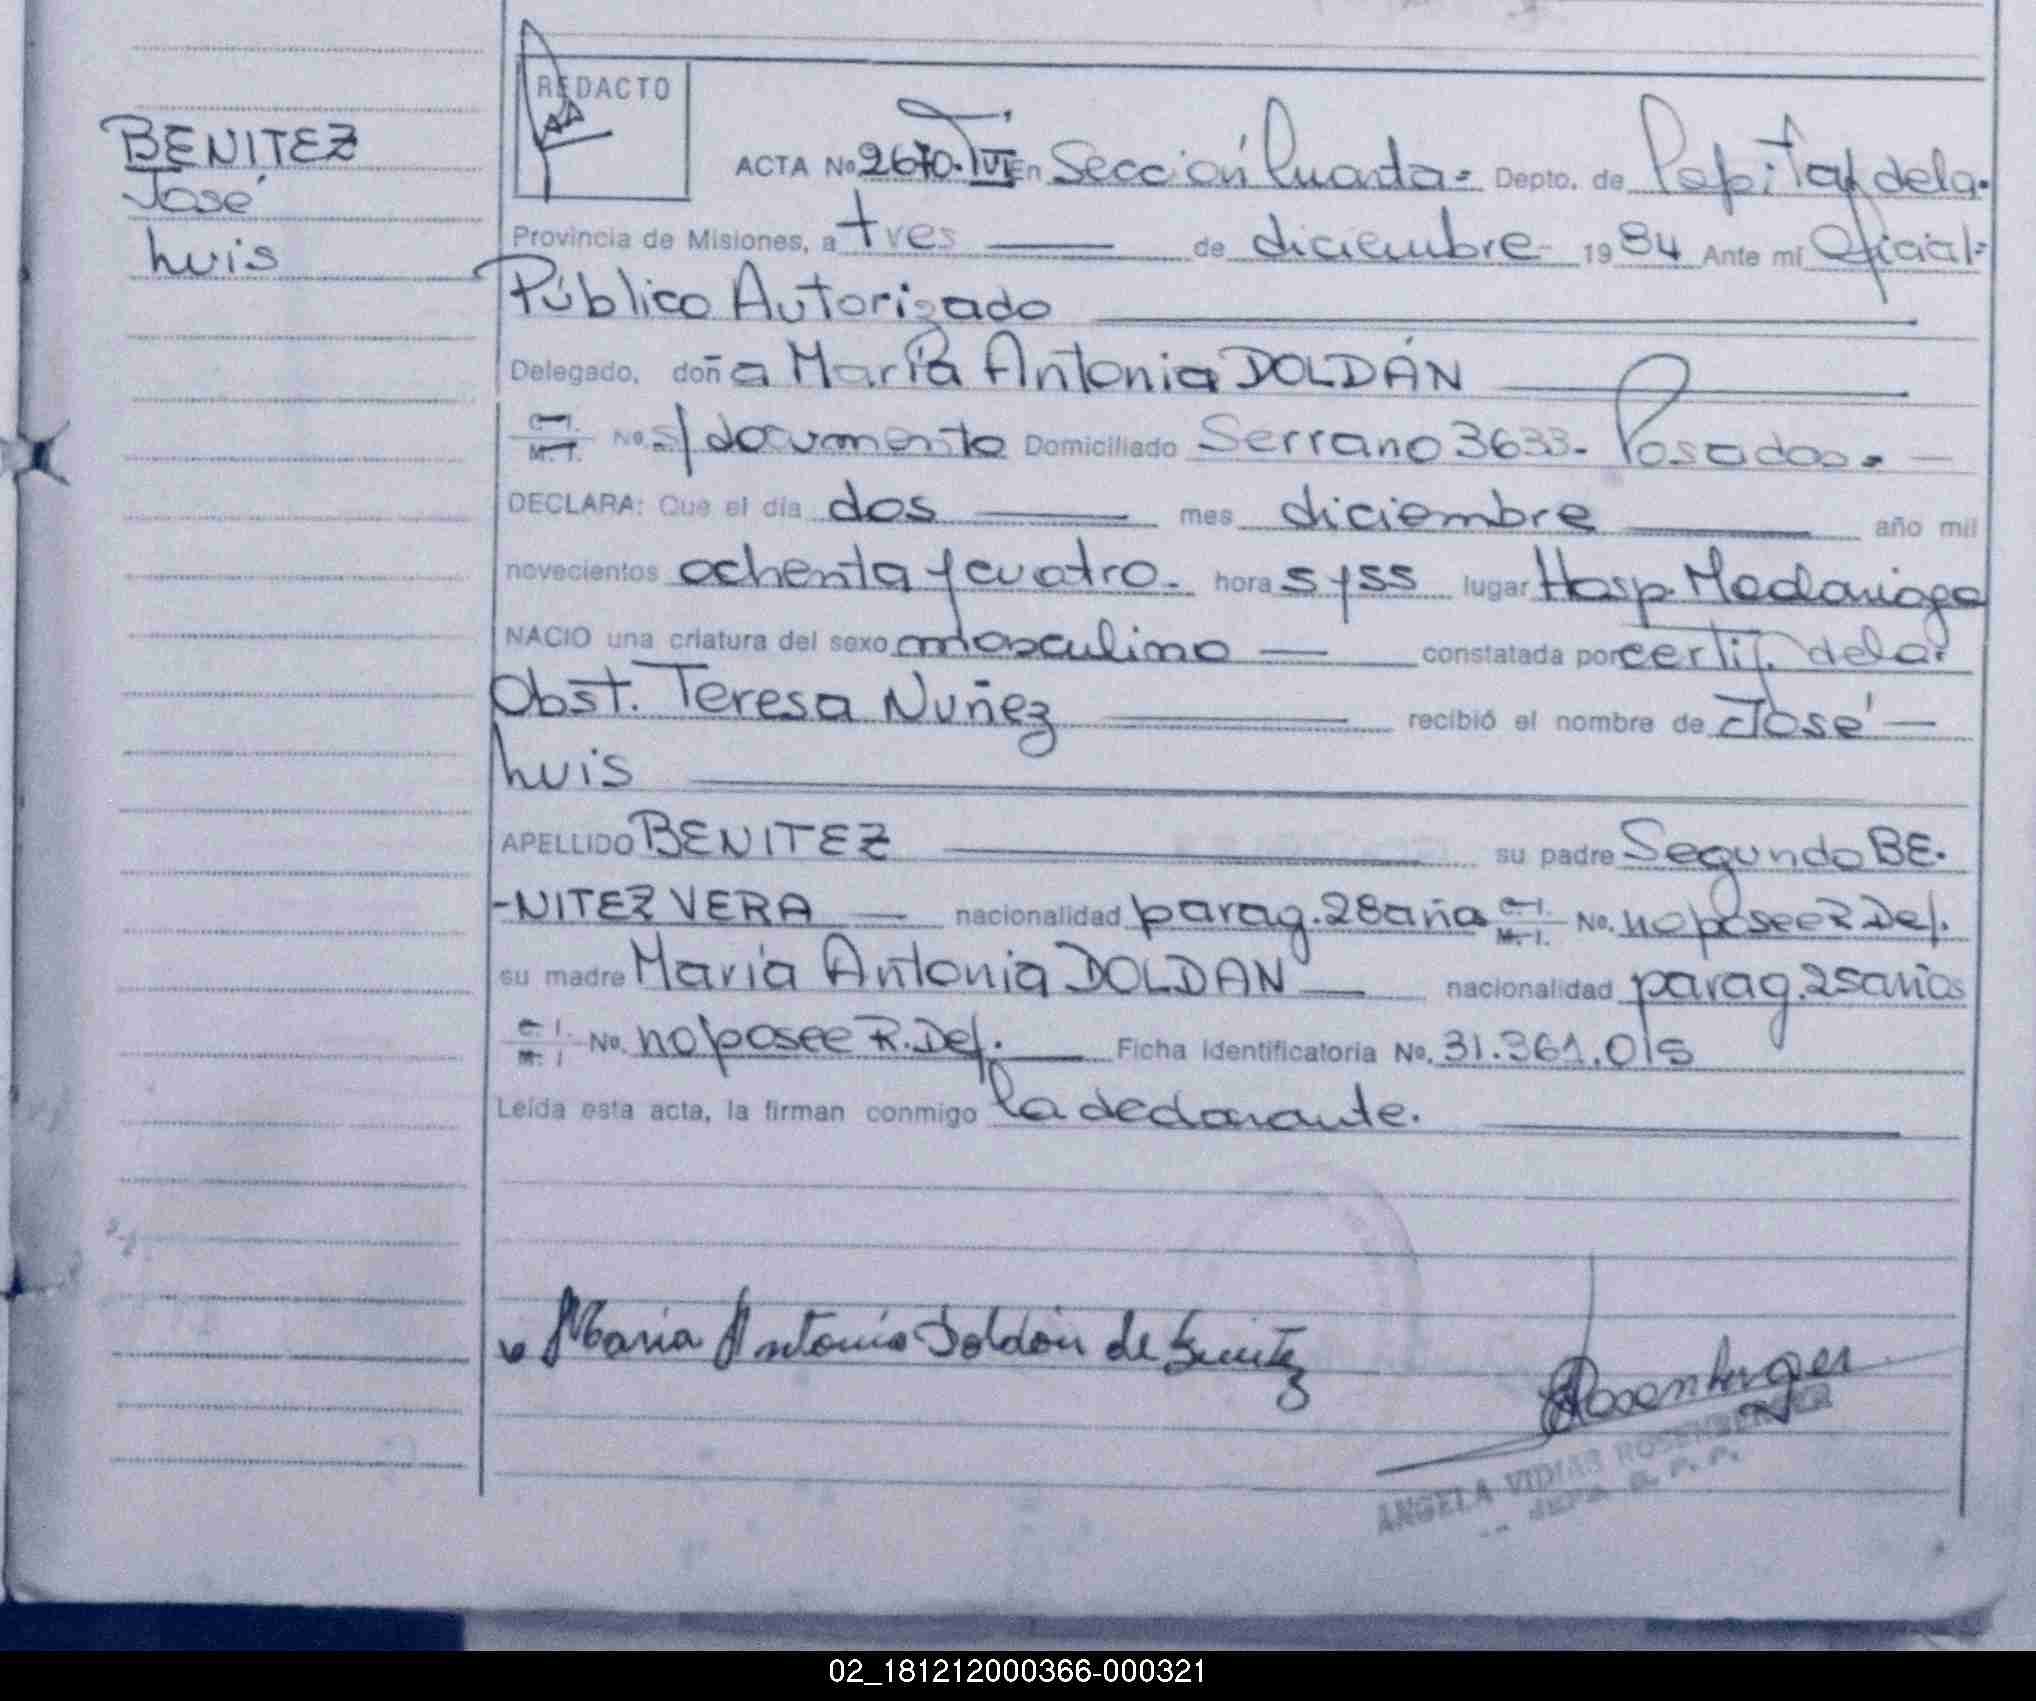 BENITEZ
José
Luis
REDACTO
ACTA No 2670. T VI En Sección Cuarta- Depto. de Capital de la-
Provincia de Misiones, a tres de diciembre- 1984 Ante mí Oficial-
Público Autorizado
Delegado, doña María Antonia DOLDÁN
C.I. M.I. No. s/documento Domiciliado Serrano 3633- Posadas.-
DECLARA: Que el día dos mes diciembre año mil
novecientos ochenta y cuatro- hora 5 y 55 lugar Hosp. Madariaga
NACIO una criatura del sexo masculino constatada por certif. de la
Obst. Teresa Nuñez recibió el nombre de José
Luis
APELLIDO BENITEZ su padre Segundo BE-
-NITEZ VERA nacionalidad parag. 28 año C.I. M.I. No. no posee R Def.
su madre María Antonia DOLDAN nacionalidad parag. 25 años
C.I. M.I No. no posee R. Def. Ficha identificatoria No. 31.361.015
Leída esta acta, la firman conmigo la declarante.
María Antonia Doldán de Benitez
Rosenberger
ANGELA VIDIAS ROSENBERGER
02_181212000366-000321